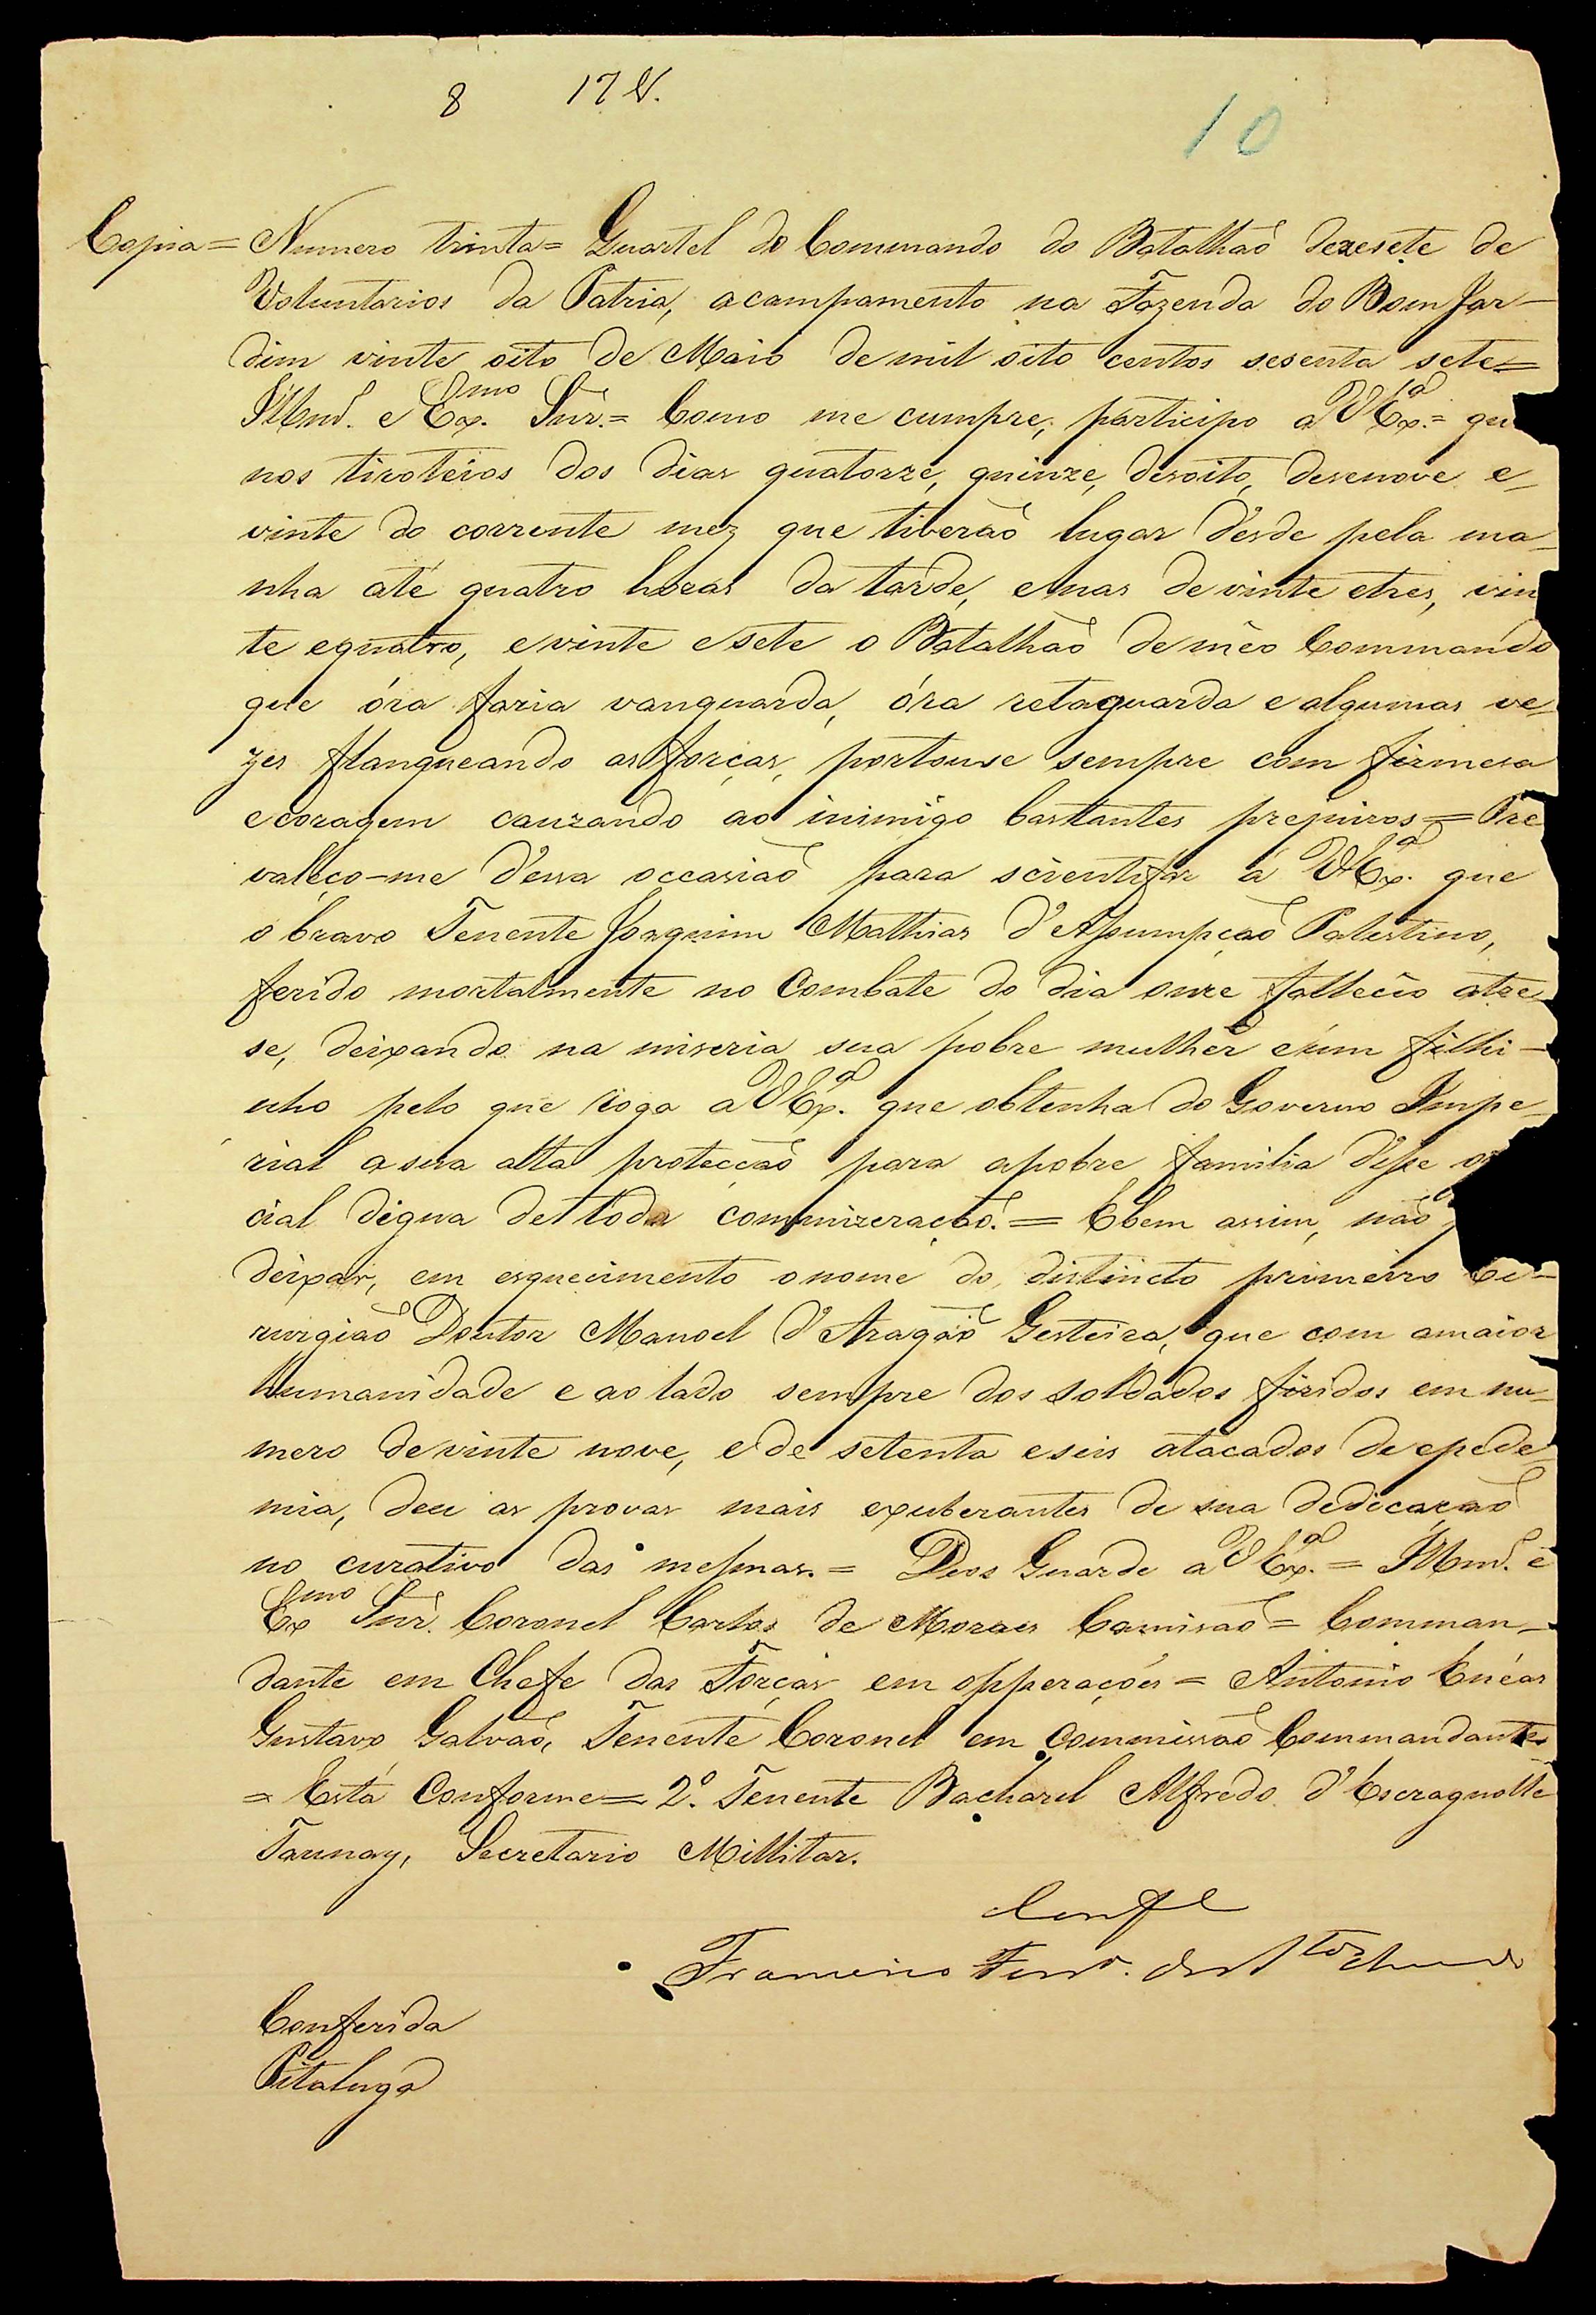 8 17 V.
10
Copia = Numero trinta = Quartel do Commando do Batalhaõ dezesete de
Voluntarios da Patria, acampamento na Fazenda do Bom Jar-
dim vinte oito de Maio de mil oito centos sesenta sete =
Illmo. e Exmo. Snr. = Como me cumpre, participo a V Exa. = qu
nos tiroteios dos dias quatorze, quinze, desoito, desenove e
vinte do corrente mez que tiveraõ lugar desde pela ma-
nha até quatro horas da tarde, e nas de vinte e tres, vin
te e quatro, e vinte e sete o Batalhaõ de mêo Commando
que óra fazia vanguarda, óra retaguarda e algumas ve-
zes flanqueando as forças, portouse sempre com firmesa
e coragem cauzando ao inimigo bastantes prejuizos = Pre
valeço-me d'essa occasiaõ para scientifar á V Exa. que
o bravo Tenente Joaquim Mathias d'Assumpçaõ Palestino,
ferido mortalmente no Combate do dia onze falleceo atre
se, deixando na miseria sua pobre mulhêr e úm filhi-
nho pelo que rogo a V Exa. que obtenha do Governo Impe-
rial a sua alta protecçaõ para a pobre familia d'esse
cial digna de toda commizeraçaõ. = E bem assim, naõ
deixar, em esquecimento o nome do distincto primeiro Ci-
rurgiaõ Doutor Manoel d'Aragaõ Gesteira, que com a maior
humanidade e ao lado sempre dos soldados feridos em nu-
mero de vinte nove, e de setenta e seis atacados de epede-
mia, deu as provas mais exuberantes de sua dedicaçaõ
no curativo das mesmas. = Deos Guarde a V Exa. = Illmo. e
Exmo Snr. Coronel Carlos de Moraes Camisaõ = Comman-
dante em Chefe das Forças em opperações = Antonio Enéas
Gustavo Galvaõ, Tenente Coronel em Commissaõ Commandante
= Está Conforme = 2º. Tenente Bacharel Alfredo d'Escragnolle
Taunay, Secretario Millitar.
Confe
Francisco
Conferida
Pitaluga